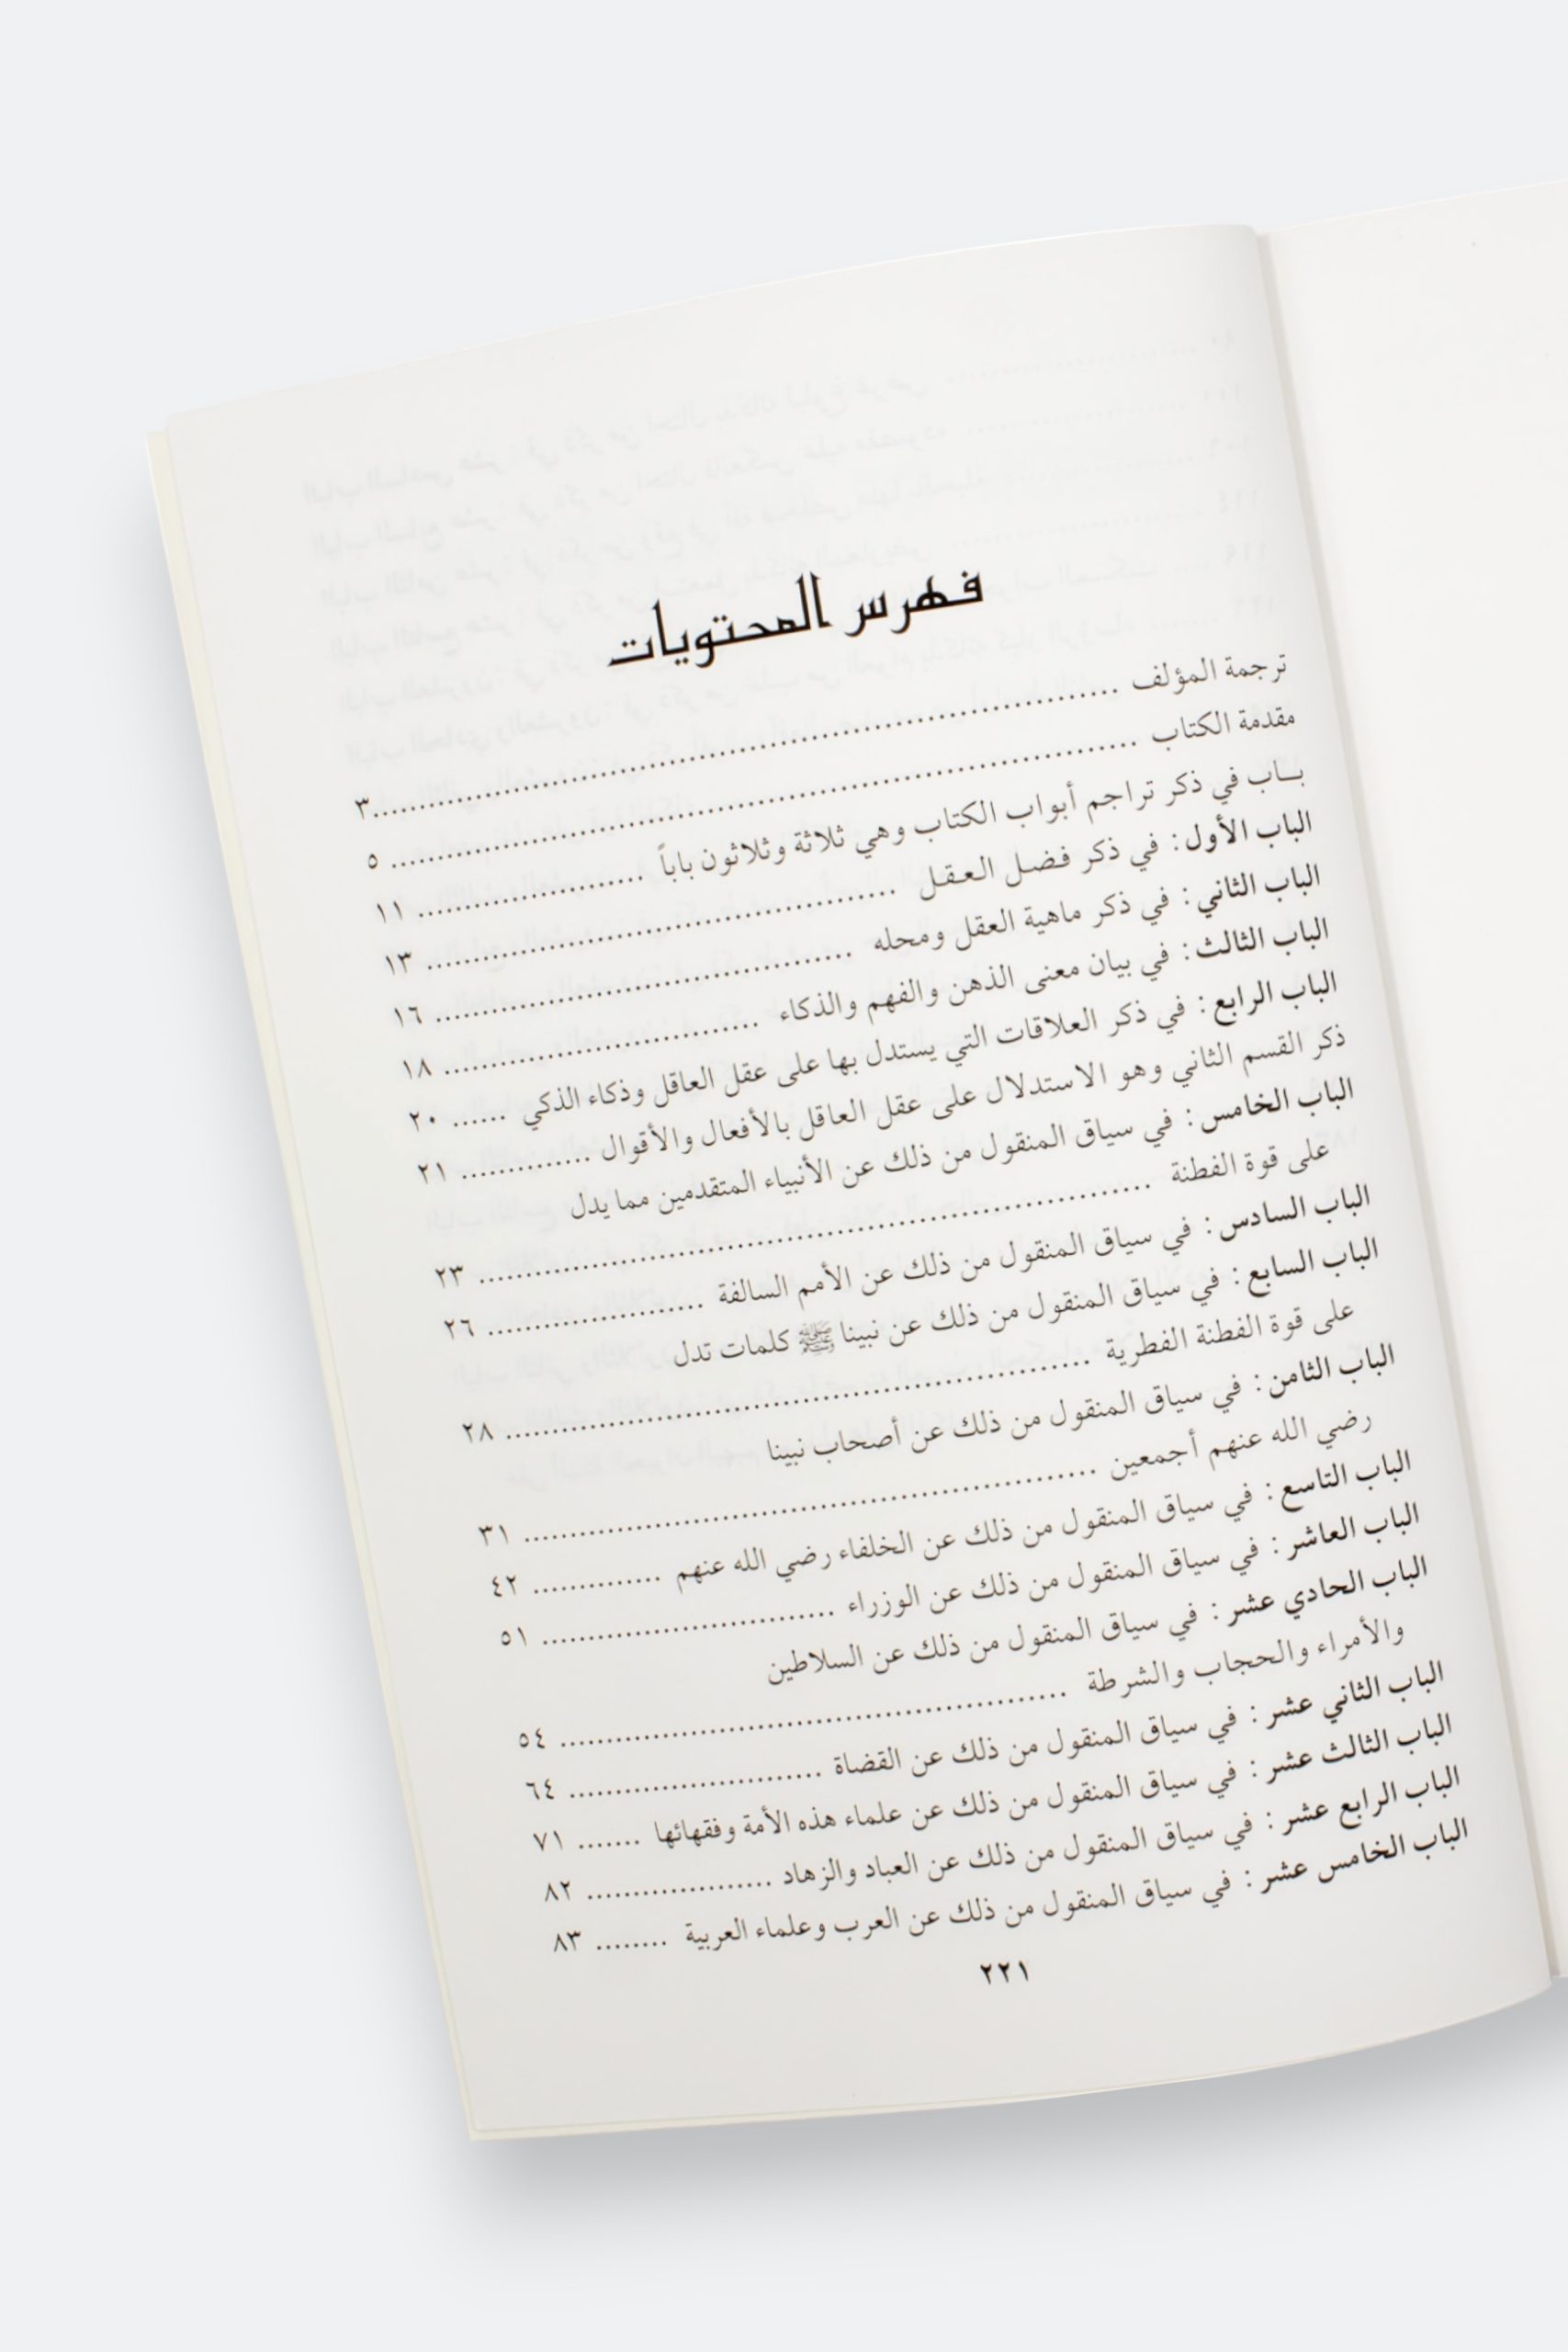 فهرس المحتويات
ترجمة المؤلف ........ ٣
مقدمة الكتاب ........ ٥
بــاب في ذكر تراجم أبواب الكتاب وهي ثلاثة وثلاثون باباً ........ ١١
الباب الأول: في ذكر فضل العقل ........ ١٣
الباب الثاني: في ذكر ماهية العقل ومحله ........ ١٦
الباب الثالث: في بيان معنى الذهن والفهم والذكاء ........ ١٨
الباب الرابع: في ذكر العلاقات التي يستدل بها على عقل العاقل وذكاء الذكي ...... ٢٠
ذكر القسم الثاني وهو الاستدلال على عقل العاقل بالأفعال والأقوال ........ ٢١
الباب الخامس: في سياق المنقول من ذلك عن الأنبياء المتقدمين مما يدل
على قوة الفطنة ........ ٢٣
الباب السادس: في سياق المنقول من ذلك عن الأمم السالفة ........ ٢٦
الباب السابع: في سياق المنقول من ذلك عن نبينا ﷺ كلمات تدل
على قوة الفطنة الفطرية ........ ٢٨
الباب الثامن: في سياق المنقول من ذلك عن أصحاب نبينا
رضي الله عنهم أجمعين ........ ٣١
الباب التاسع: في سياق المنقول من ذلك عن الخلفاء رضي الله عنهم ........ ٤٢
الباب العاشر: في سياق المنقول من ذلك عن الوزراء ........ ٥١
الباب الحادي عشر: في سياق المنقول من ذلك عن السلاطين
والأمراء والحجاب والشرطة ........ ٥٤
الباب الثاني عشر: في سياق المنقول من ذلك عن القضاة ........ ٦٤
الباب الثالث عشر: في سياق المنقول من ذلك عن علماء هذه الأمة وفقهائها ....... ٧١
الباب الرابع عشر: في سياق المنقول من ذلك عن العباد والزهاد ........ ٨٢
الباب الخامس عشر: في سياق المنقول من ذلك عن العرب وعلماء العربية ........ ٨٣
٢٢١